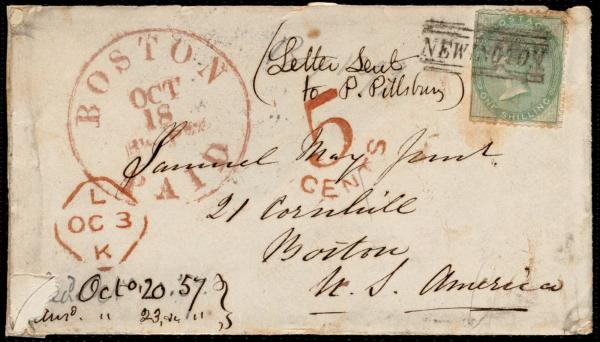 BOSTON
OCT
18
PAID
(Letter Sent
to P. Pillsbury)
POSTAGE
NEWINGTON
ONE SHILLING
5
CENTS
Samuel May Junr
21 Cornhill
Boston
U. S. America
L
OC 3
K
Octo. 20. '57.
" 23, "